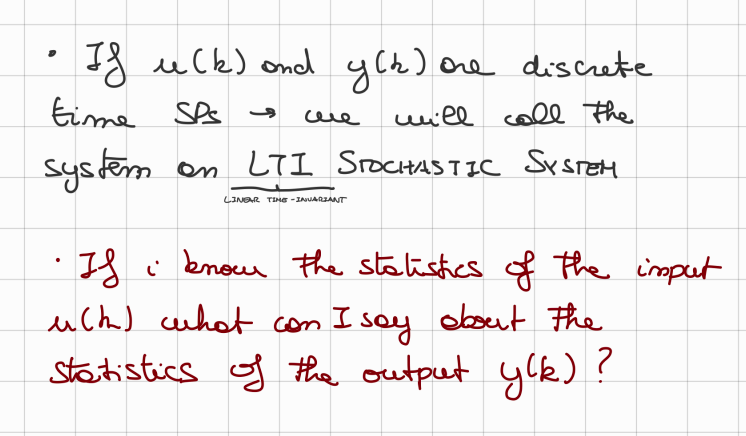 • If u(k) and y(k) are discrete
time SPs → we will call the
system an LTI STOCHASTIC SYSTEM
LINEAR TIME-INVARIANT
• If i know the statistics of the input
u(k) what can I say about the
statistics of the output y(k)?